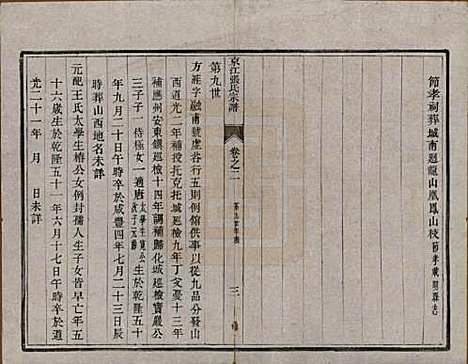 節孝祠葬城南迴龍山鳳凰山校節孝載縣志
京江張氏宗譜
卷之二
三
第九世
方莊字融甫號虛谷行五則例館供事以從九品分發山
西道光二年補授托克托城巡檢九年丁父憂十三年
補應州安東鎮巡檢十四年調補歸化城巡檢寶嚴公
三子子一侍極女一適唐太學生寬公次子元勳生於乾隆五十
年九月二十日午時卒於咸豐四年七月二十三日辰
時葬山西地名未詳
元配王氏太學生椿公女例封孺人生子女皆早亡年五
十六歲生於乾隆五十一年六月十七日午時卒於道
光二十一年 月 日未詳